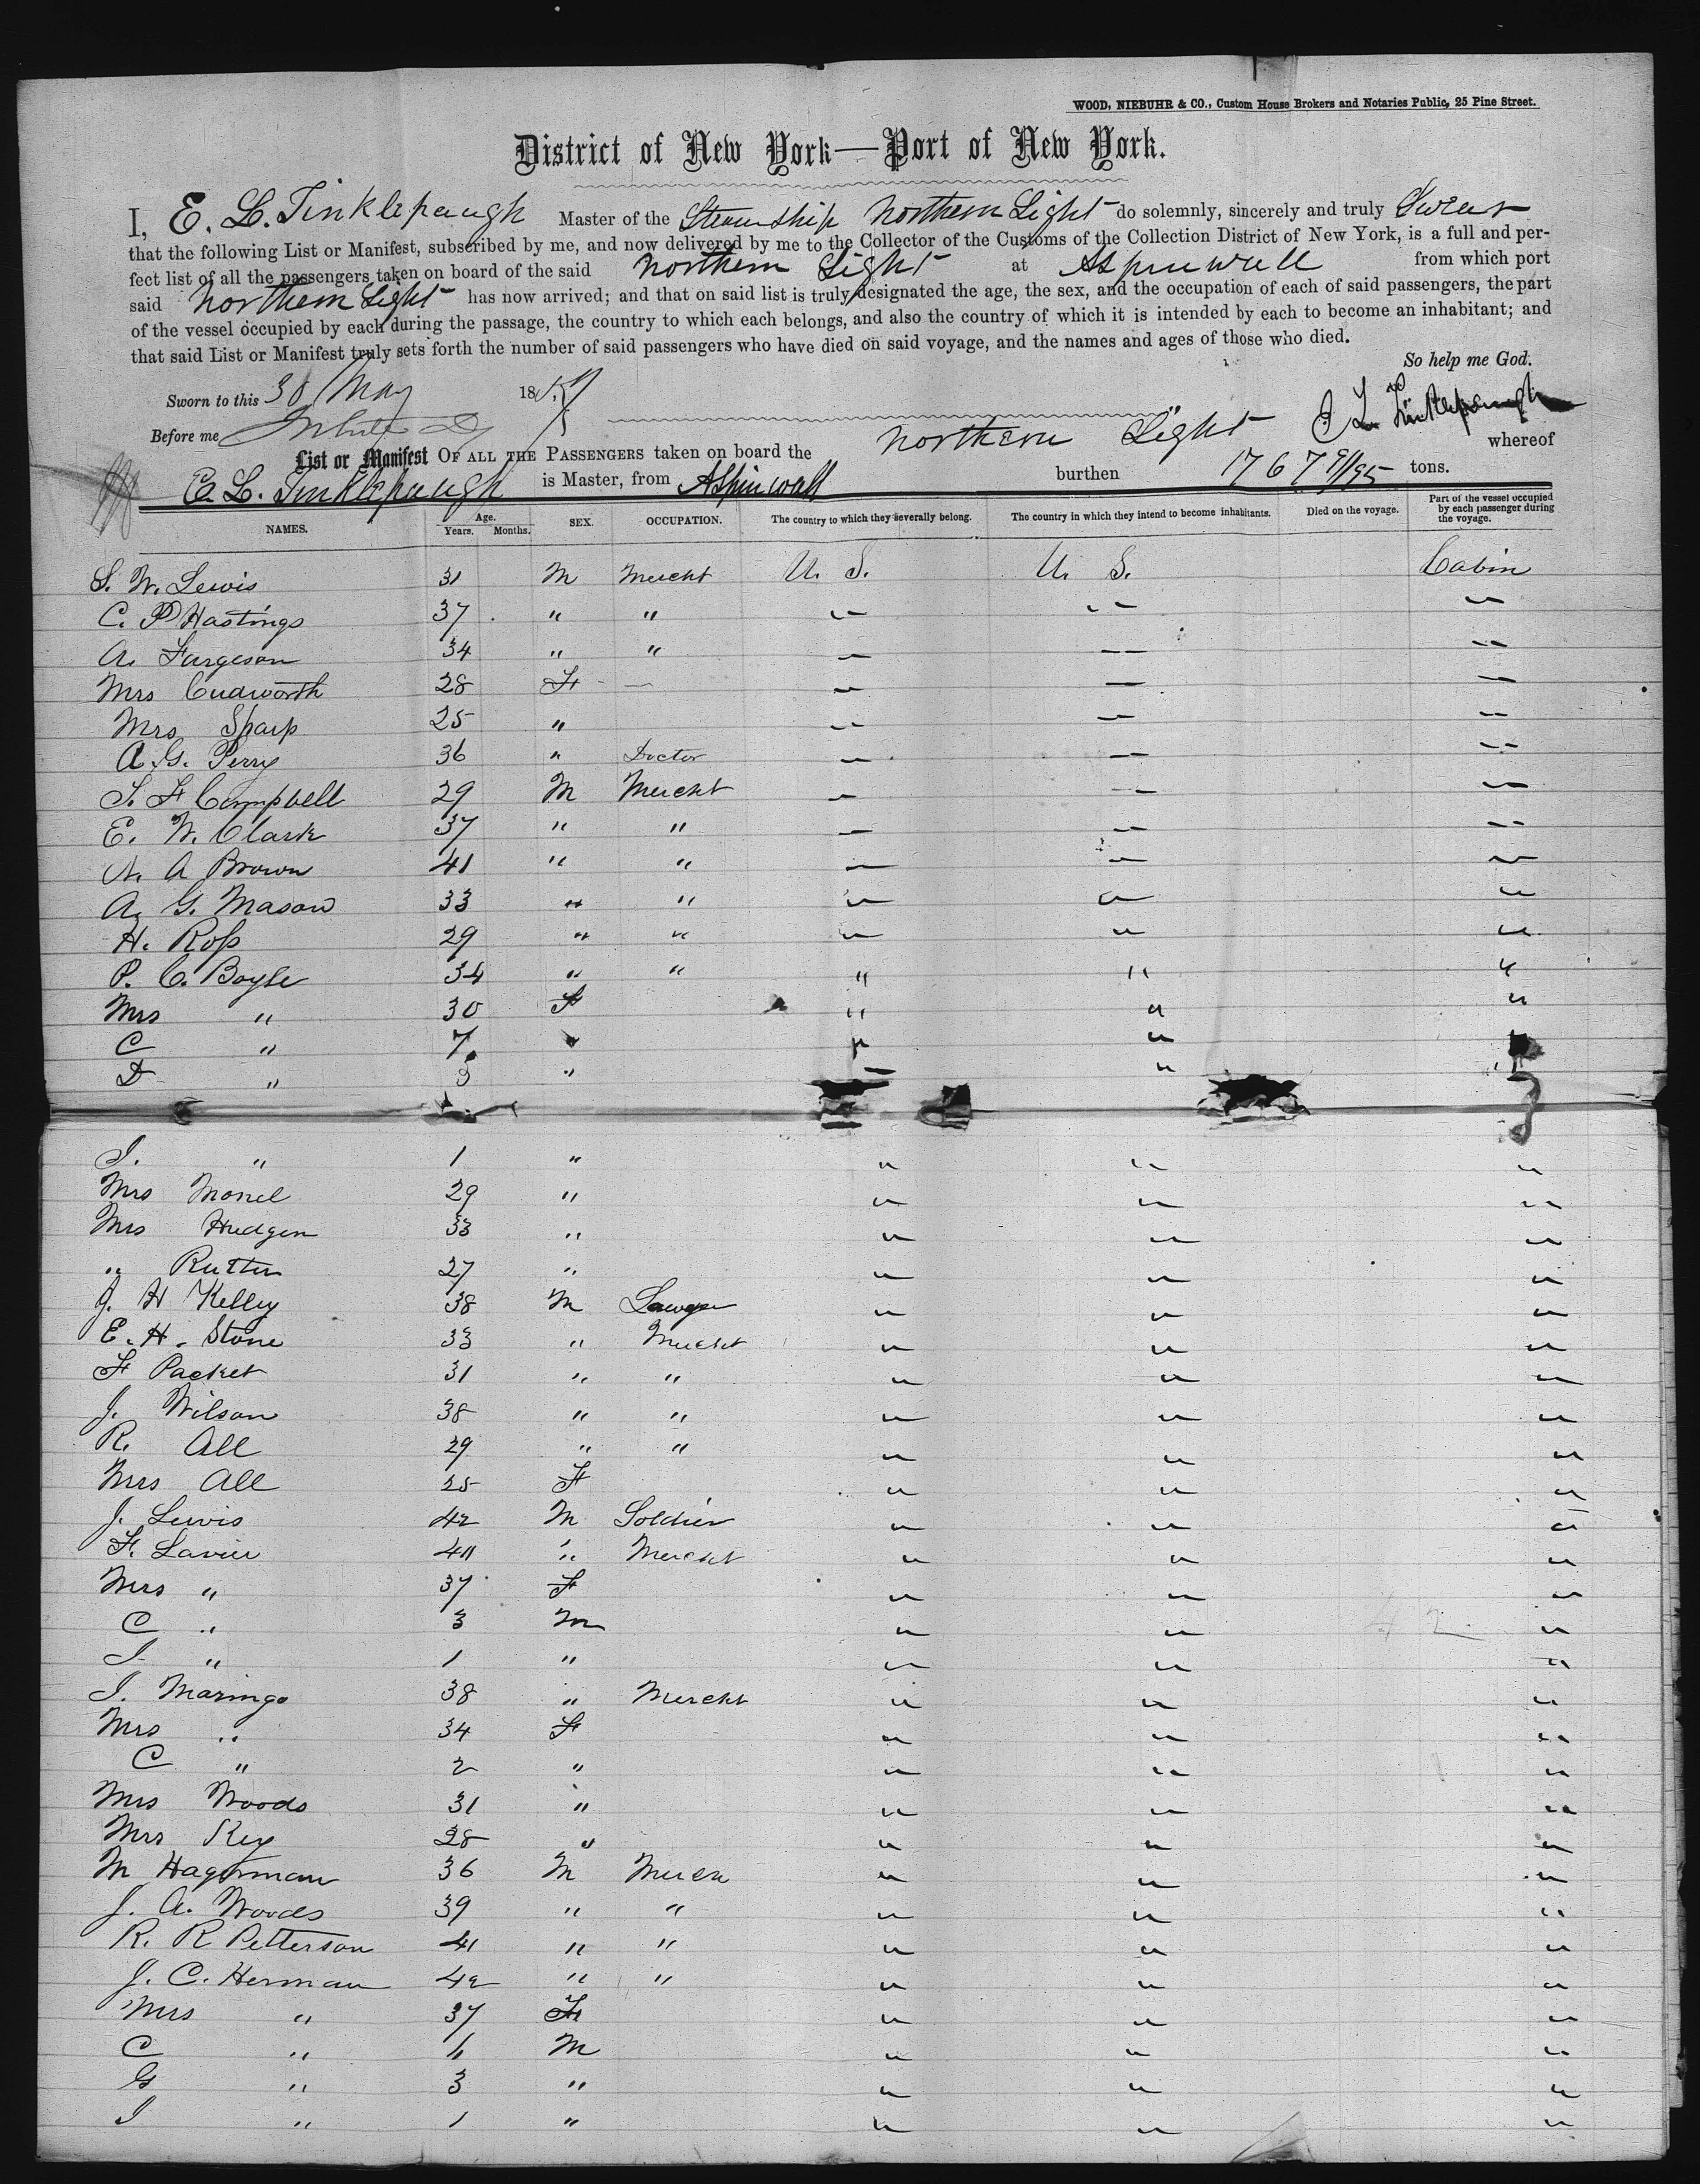 WOOD, NIEBUHR & CO., Custom House Brokers and Notaries Public, 25 Pine Street.
District of New York—Port of New York.
I, E. L. Tinklepaugh Master of the Steamship Northern Light do solemnly, sincerely and truly Swear
that the following List or Manifest, subscribed by me, and now delivered by me to the Collector of the Customs of the Collection District of New York, is a full and per-
fect list of all the passengers taken on board of the said Northern Light at Aspinwall from which port
said Northern Light has now arrived; and that on said list is truly designated the age, the sex, and the occupation of each of said passengers, the part
of the vessel occupied by each during the passage, the country to which each belongs, and also the country of which it is intended by each to become an inhabitant; and
that said List or Manifest truly sets forth the number of said passengers who have died on said voyage, and the names and ages of those who died.
So help me God.
Sworn to this 30 May 1859
E L Tinklepaugh
Before me
List or Manifest OF ALL THE PASSENGERS taken on board the Northern Light whereof
E. L. Tinklepaugh is Master, from Aspinwall burthen 1767 91/95 tons.
NAMES. Age. Years. Months. SEX. OCCUPATION. The country to which they severally belong. The country in which they intend to become inhabitants. Died on the voyage. Part of the vessel occupied by each passenger during the voyage.
S. W. Lewis 31 M Mercht U. S. U. S. Cabin
C. P Hastings 37 " " " " "
A. Fargeson 34 " " " " "
Mrs Cudworth 28 F — " " "
Mrs Sharp 25 " " " "
A. G. Perry 36 " Doctor " " "
S. F Campbell 29 M Mercht " " "
E. W. Clark 37 " " " " "
N. A Brown 41 " " " " "
A. G. Mason 33 " " " " "
H. Ross 29 " " " " "
P. C. Boyle 34 " " " " "
Mrs " 30 F " " "
C " 7 " " " "
D " 3 " " " "
I. " 1 " " " "
Mrs Monel 29 " " " "
Mrs Hudgen 33 " " " "
" Rutter 27 " " " "
J. H Kelley 38 M Lawyer " " "
E. H. Stone 33 " Mercht " " "
F Packet 31 " " " " "
J. Wilson 38 " " " " "
R. All 29 " " " " "
Mrs All 25 F " " "
J. Lewis 42 M Soldier " " "
F. Lavier 40 " Mercht " " "
Mrs " 37 F " " "
C " 3 M " " "
I " 1 " " " "
I. Maringo 38 " Mercht " " "
Mrs " 34 F " " "
C " 2 " " " "
Mrs Woods 31 " " " "
Mrs Key 28 " " " "
M Hagerman 36 M Merch " " "
J. A. Woods 39 " " " " "
R. R Petterson 41 " " " " "
J. C. Herman 42 " " " " "
Mrs " 37 F " " "
C " 6 M " " "
G " 3 " " " "
I " 1 " " " "